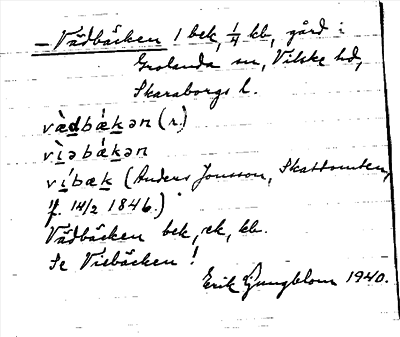 – Vädbäcken 1 bek, 1/4 kb, gård i
Grolanda sn, Vilske hd,
Skaraborgs l.
væ̀dbǽkən (r.)
vìəbǽkən
víbæk (Anders Jonsson, Skattomten,
f. 14/2 1846.)
Vädbäcken bek, ek, kb.
Se Viebäcken!
Erik Ljungblom 1940.